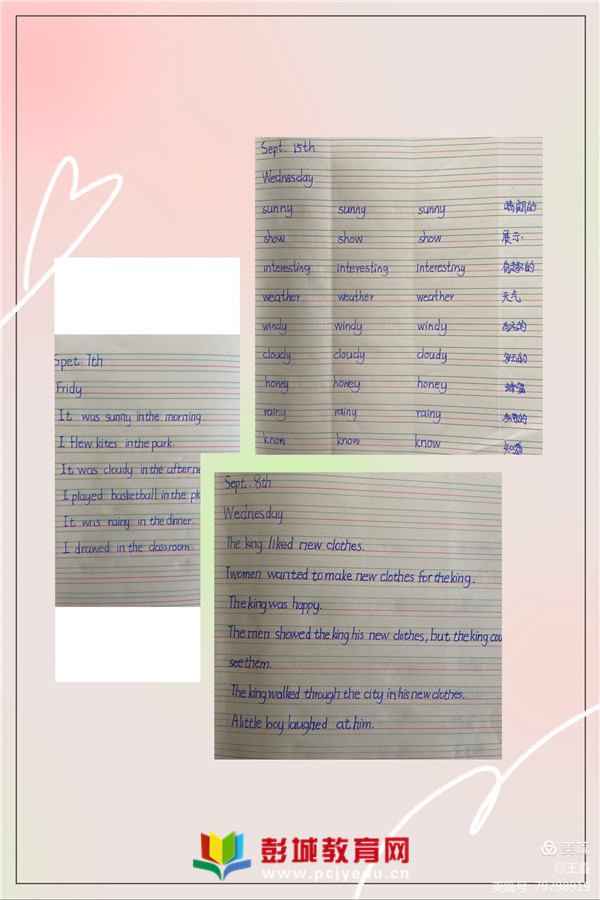 Sept. 15th
Wednesday
sunny sunny sunny 晴朗的
show show show 展示
interesting interesting interesting 有趣的
weather weather weather 天气
windy windy windy
cloudy cloudy cloudy
honey honey honey 蜂蜜
rainy rainy rainy
know know know 知道
Spet. 7th
Fridy
It was sunny in the morning.
I flew kites in the park.
It was cloudy in the afterno
I played basketball in the
It was rainy in the dinner.
I drawed in the classroom.
Sept. 8th
Wednesday
The king liked new clothes.
Twomen wanted to make new clothes for the king.
The king was happy.
The men showed the king his new clothes, but the king cou
see them.
The king walked through the city in his new clothes.
A little boy laughed at him.
彭城教育网
www.pcjyedu.cn
美篇
@王
美篇号: 79798919